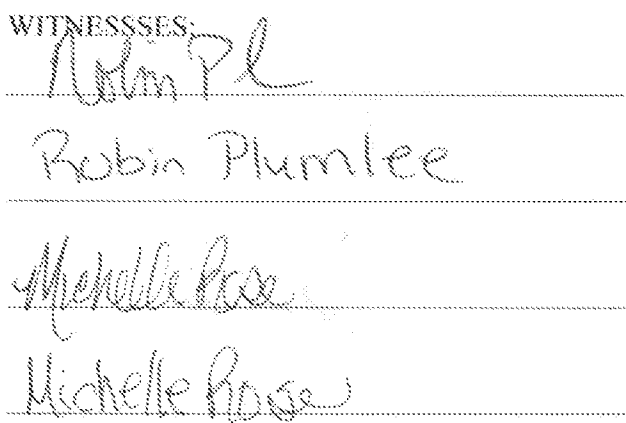 WITNESSSES:
Robin Pl
Robin Plumlee
Michelle Rose
Michelle Rose